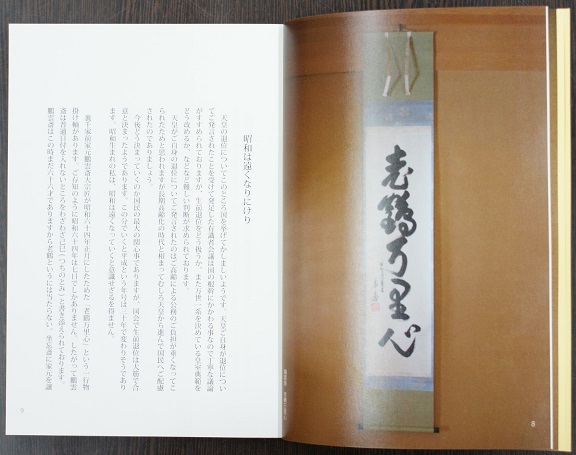 昭和は遠くなりにけり
天皇の退位についてこのところ国を挙げてかまびすしいようです。天皇ご自身が退位につい
てご発言されたことを受けて発足した有識者会議は国の根幹にかかわる事なので丁寧な議論
がすすめられておりますが、生前退位をどう扱うか、また万世一系を決めている皇室典範を
どう改めるか、などなど難しい判断が求められております。
天皇がご自身の退位についてご発言されたのはご高齢による公務のご負担が重くなってこ
られたためと思われますが長期高齢化の時代と相まってむしろ天皇から進んで国民へご配慮
されたのでありましょう。
今後どう決まっていくのか国民の最大の関心事でありますが、国会で生前退位は大筋で合
意と決まったようであります。この分でいくと平成という年号は三十年で変わりそうであり
ます。昭和生まれの私は、昭和は遠くなっていくなと意識せざるを得ません。
裏千家前家元鵬雲斎大宗匠が昭和六十四年正月にしたためた「老鶴万里心」という一行物
掛け軸があります。ご存知のように昭和六十四年は七日でしかありません。したがって鵬雲
斎は普通日付を入れないところをわざわざ己巳(つちのとみ)と書き添えられております。
鵬雲斎はこの時まだ六十六才でありますから老鶴というには当たらない。坐忘斎に家元を譲
9
老鶴万里心
8